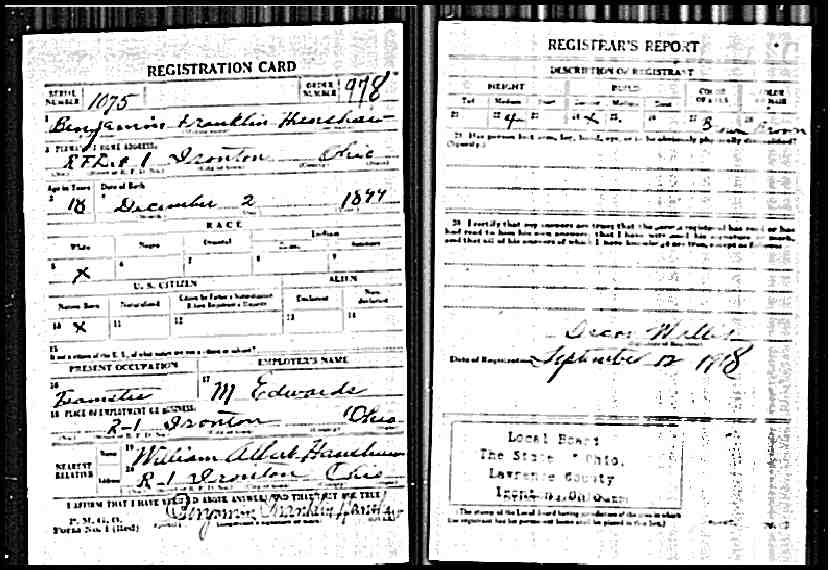 REGISTRATION CARD
SERIAL NUMBER 1075 ORDER NUMBER 978
1 Benjamin Franklin Henshaw
2 PERMANENT HOME ADDRESS:
R.F.D. # 1 Ironton Ohio
Age in Years Date of Birth
3 18 4 December 2 1899
RACE
White Negro Oriental Indian
5 X 6 7 8 9
U. S. CITIZEN ALIEN
Native Born Naturalized Citizen by Father's Naturalization Before Registrant's Majority Declarant Non-declarant
10 X 11 12 13 14
15
If not a citizen of the U. S., of what nation are you a citizen or subject?
PRESENT OCCUPATION EMPLOYER'S NAME
16 Teamster 17 M Edwards
18 PLACE OF EMPLOYMENT OR BUSINESS:
R-1 Ironton Ohio
NEAREST RELATIVE Name 19 William Albert Henshaw
Address 20 R-1 Ironton Ohio
I AFFIRM THAT I HAVE VERIFIED ABOVE ANSWERS AND THAT THEY ARE TRUE
P. M. G. O.
Form No. 1 (Red) Benjamin Franklin Henshaw
REGISTRAR'S REPORT
DESCRIPTION OF REGISTRANT
HEIGHT BUILD COLOR OF EYES COLOR OF HAIR
Tall Medium Short Slender Medium Stout
21 22 23 24 X 25 26 27 28 Brown
29 Has person lost arm, leg, hand, eye, or is he obviously physically disqualified?
(Specify.)
30 I certify that my answers are true; that the person registered has read or has
had read to him his own answers; that I have witnessed his signature or mark,
and that all of his answers of which I have knowledge are true, except as follows:
Date of Registration September 12 1918
Local Board
The State of Ohio,
Lawrence County
Ironton, Ohio
(The stamp of the Local Board having jurisdiction of the area in which
the registrant has his permanent home shall be placed in this box.)